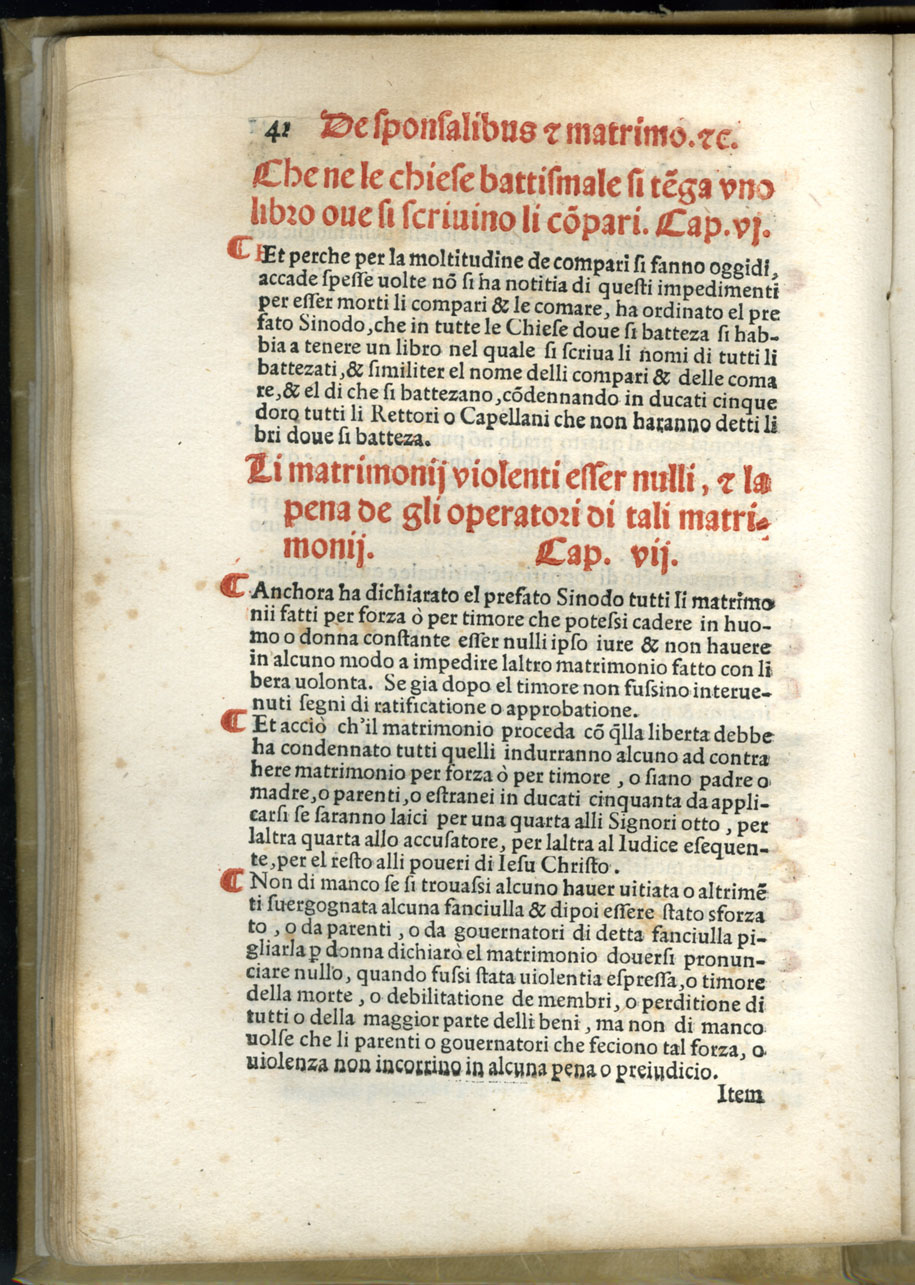 42 De sponsalibus ⁊ matrimo.⁊c.
Che ne le chiese battismale si tẽga vno
libro oue si scriuino li cõpari. Cap.vj.
Et perche per la moltitudine de compari si fanno oggidi,
accade spesse uolte nõ si ha notitia di questi impedimenti
per esser morti li compari & le comare, ha ordinato el pre
fato Sinodo, che in tutte le Chiese doue si batteza si hab-
bia a tenere un libro nel quale si scriua li nomi di tutti li
battezati, & similiter el nome delli compari & delle coma
re, & el di che si battezano, cõdennando in ducati cinque
doro tutti li Rettori o Capellani che non haranno detti li
bri doue si batteza.
Li matrimonij violenti esser nulli, ⁊ la
pena de gli operatori di tali matri-
monij. Cap. vij.
Anchora ha dichiarato el prefato Sinodo tutti li matrimo
nii fatti per forza ò per timore che potessi cadere in huo-
mo o donna constante esser nulli ipso iure & non hauere
in alcuno modo a impedire laltro matrimonio fatto con li
bera uolonta. Se gia dopo el timore non fussino interue-
nuti segni di ratificatione o approbatione.
Et acciò ch'il matrimonio proceda cõ q̃lla liberta debbe
ha condennato tutti quelli indurranno alcuno ad contra
here matrimonio per forza ò per timore, o siano padre o
madre, o parenti, o estranei in ducati cinquanta da appli-
carsi se saranno laici per una quarta alli Signori otto, per
laltra quarta allo accusatore, per laltra al Iudice esequen-
te, per el resto alli poueri di Iesu Christo.
Non di manco se si trouassi alcuno hauer uitiata o altrimẽ
ti suergognata alcuna fanciulla & dipoi essere stato sforza
to, o da parenti, o da gouernatori di detta fanciulla pi-
gliarla ꝑ donna dichiarò el matrimonio douersi pronun-
ciare nullo, quando fussi stata uiolentia espressa, o timore
della morte, o debilitatione de membri, o perditione di
tutti o della maggior parte delli beni, ma non di manco
uolse che li parenti o gouernatori che feciono tal forza, o
uiolenza non incorrino in alcuna pena o preiudicio.
Item